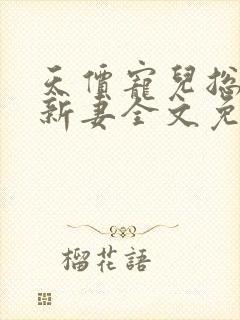 天價寵兒總
新妻全文免
榴花語